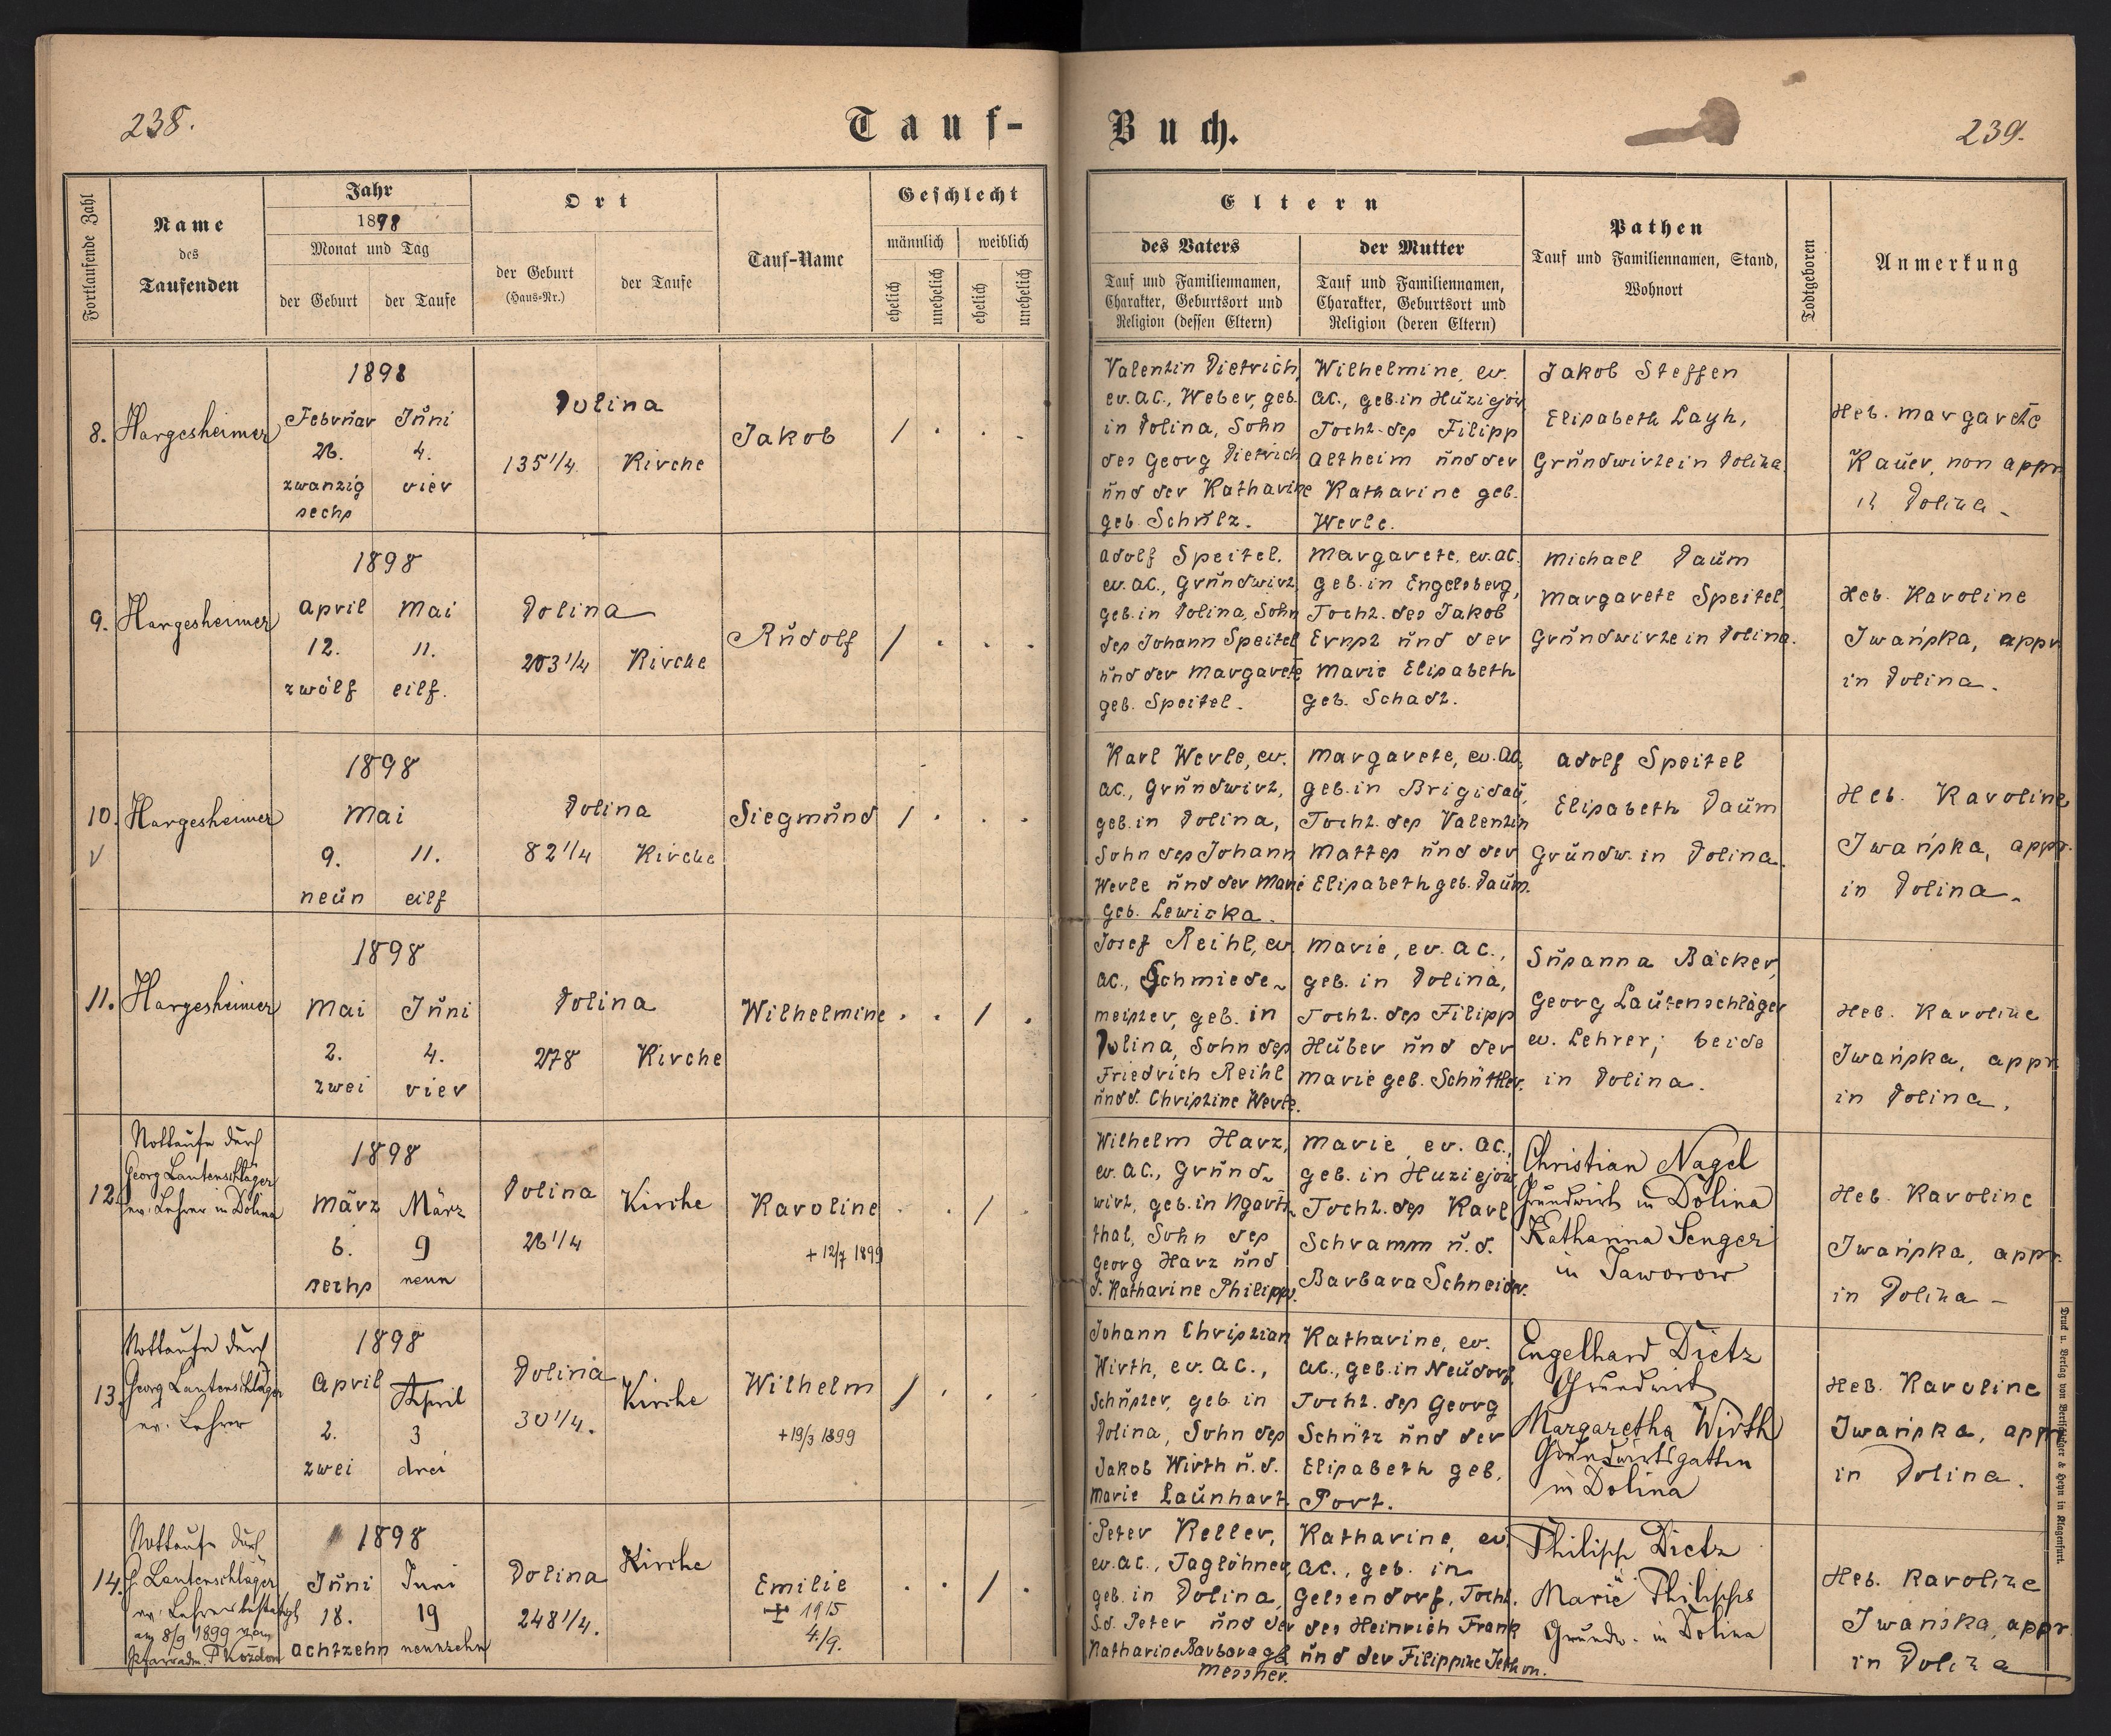 238.
Tauf-
Buch.
239.
Fortlaufende Zahl
Name
des
Taufenden
Jahr
1898
Monat und Tag
der Geburt
der Taufe
Ort
der Geburt
(Haus-Nr.)
der Taufe
Tauf-Name
Geschlecht
männlich
weiblich
ehelich
unehelich
ehelich
unehelich
Eltern
des Vaters
Tauf und Familiennamen,
Charakter, Geburtsort und
Religion (dessen Eltern)
der Mutter
Tauf und Familiennamen,
Charakter, Geburtsort und
Religion (deren Eltern)
Pathen
Tauf und Familiennamen, Stand,
Wohnort
Todtgeboren
Anmerkung
8.
Hargesheimer
1898
Februar Juni
26. 4.
zwanzig vier
sechs
Dolina
135 1/4 Kirche
Jakob
/ . . .
Valentin Dietrich,
ev. AC., Weber, geb.
in Dolina, Sohn
des Georg Dietrich
und der Katharine
geb. Schulz.
Wilhelmine, ev.
AC., geb. in Huziejów
Tocht. des Filipp
Altheim und der
Katharine geb.
Werle.
Jakob Steffen
Elisabeth Layh,
Grundwirte in Dolina.
Heb. Margarete
Kauer, non appr.
in Dolina.
9.
Hargesheimer
1898
April Mai
12. 11.
zwölf eilf.
Dolina
203 1/4 Kirche
Rudolf
/ . . .
Adolf Speitel,
ev. AC., Grundwirt,
geb. in Dolina, Sohn
des Johann Speitel
und der Margarete
geb. Speitel.
Margarete, ev. AC.
geb. in Engelsberg,
Tocht. des Jakob
Ernst und der
Marie Elisabeth
geb. Schadt.
Michael Daum
Margarete Speitel,
Grundwirte in Dolina.
Heb. Karoline
Iwańska, appr.
in Dolina.
10.
Hargesheimer
1898
Mai
9. 11.
neun eilf
Dolina
82 1/4 Kirche
Siegmund
/ . . .
Karl Werle, ev.
AC., Grundwirt,
geb. in Dolina,
Sohn des Johann
Werle und der Marie
geb. Lewicka.
Margarete, ev. AC,
geb. in Brigidau,
Tocht. des Valentin
Mattes und der
Elisabeth geb. Daum.
Adolf Speitel
Elisabeth Daum
Grundw. in Dolina.
Heb. Karoline
Iwańska, appr.
in Dolina.
11.
Hargesheimer
1898
Mai Juni
2. 4.
zwei vier
Dolina
278 Kirche
Wilhelmine
. . / .
Josef Reihl, ev.
AC., Schmiede-
meister, geb. in
Dolina, Sohn des
Friedrich Reihl
und d. Christine Werle.
Marie, ev. AC.,
geb. in Dolina,
Tocht. des Filipp
Huber und der
Marie geb. Schüttler.
Susanna Bäcker,
Georg Lautenschläger
ev. Lehrer; beide
in Dolina.
Heb. Karoline
Iwańska, appr.
in Dolina.
12.
Nottaufe durch
Georg Lautenschläger
ev. Lehrer in Dolina
1898
März März
6. 9
sechs neun
Dolina Kirche
26 1/4
Karoline
+ 12/7 1899
. . / .
Wilhelm Harz,
ev. AC., Grund-
wirt, geb. in Ugarts-
thal, Sohn des
Georg Harz und
d. Katharine Philipps.
Marie, ev. AC.,
geb. in Huziejów
Tocht. des Karl
Schramm u. d.
Barbara Schneider.
Christian Nagel
Grundwirt in Dolina
Katharina Senger
in Jaworow
Heb. Karoline
Iwańska, appr.
in Dolina
13.
Nottaufe durch
Georg Lautenschläger
ev. Lehrer
1898
April April
2. 3
zwei drei
Dolina Kirche
30 1/4.
Wilhelm
+ 19/3 1899
/ . . .
Johann Christian
Wirth, ev. AC.,
Schuster, geb. in
Dolina, Sohn des
Jakob Wirth u. d.
Marie Launhart.
Katharine, ev.
AC., geb. in Neudorf,
Tocht. des Georg
Schütz und der
Elisabeth geb.
Port.
Engelhard Dietz
Grundwirt
Margaretha Wirth
Grundwirtsgattin
in Dolina
Heb. Karoline
Iwańska, appr.
in Dolina.
14.
Nottaufe durch
G. Lautenschläger
ev. Lehrer bestätigt
am 8/9 1899 vom
Pfarradm. P Kozdon
1898
Juni Juni
18. 19
achtzehn neunzehn
Dolina Kirche
248 1/4.
Emilie
+ 1915
4./9.
. . / .
Peter Keller,
ev. AC., Taglöhner,
geb. in Dolina,
S. d. Peter und der
Katharine Barbara geb.
Messner.
Katharine, ev.
AC., geb. in
Gelsendorf, Tocht.
des Heinrich Frank
und der Filippine Jethon.
Philipp Dietz
Marie Philipps
Grundw. in Dolina
Heb. Karoline
Iwańska, appr.
in Dolina
Druck u. Verlag von Bertschinger & Heyn in Klagenfurt.